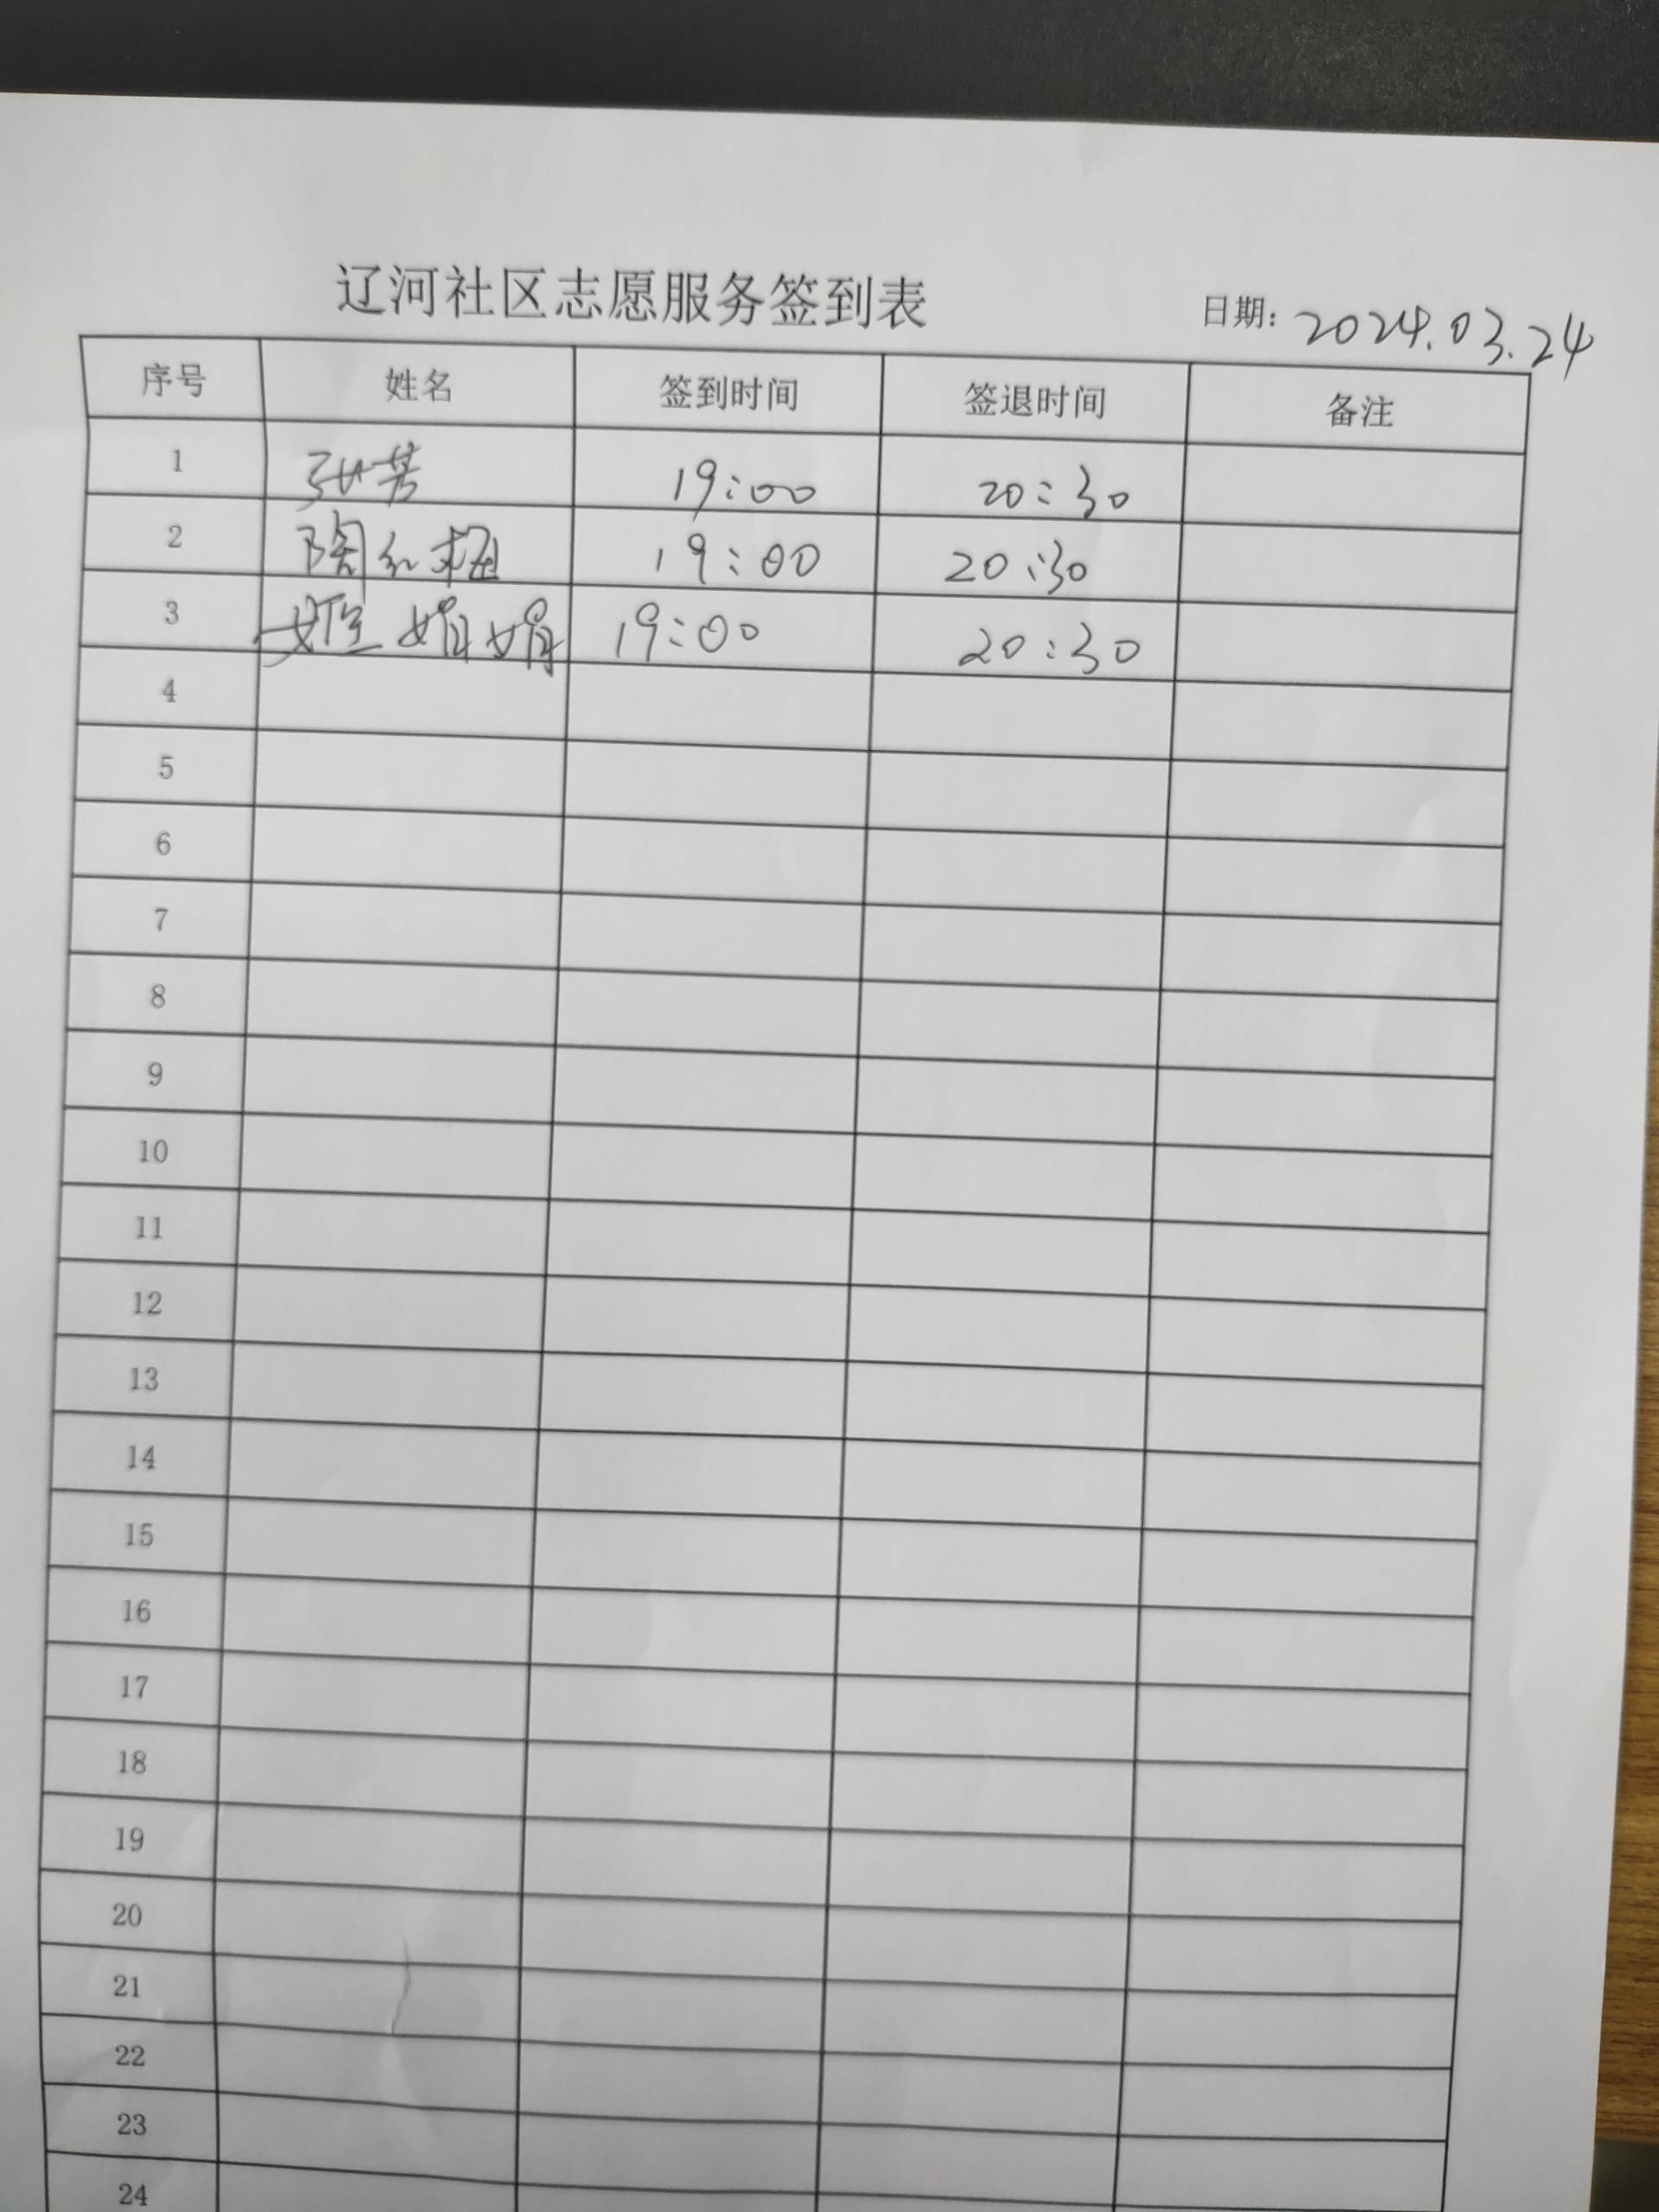 辽河社区志愿服务签到表 日期: 2024.03.24
序号 姓名 签到时间 签退时间 备注
1 张芳 19:00 20:30
2 陶红梅 19:00 20:30
3 娟娟 19:00 20:30
4
5
6
7
8
9
10
11
12
13
14
15
16
17
18
19
20
21
22
23
24